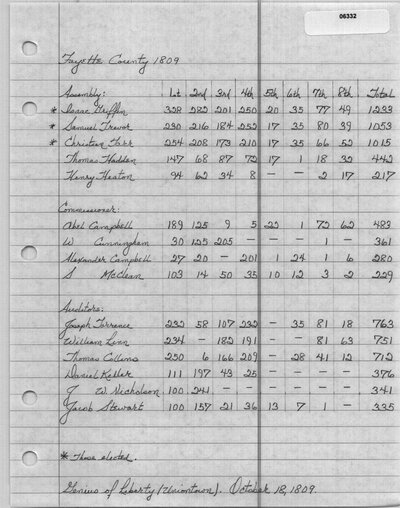 06332
Fayette County 1809
Assembly: 1st 2nd 3rd 4th 5th 6th 7th 8th Total
* Isaac Griffin 328 282 201 250 20 35 77 49 1233
* Samuel Trevor 230 216 184 252 17 35 80 39 1053
* Christian Tarr 254 208 173 210 17 35 66 52 1015
Thomas Hadden 147 68 87 72 17 1 18 32 442
Henry Heaton 94 62 34 8 — — 2 17 217
Commissioner:
Abel Campbell 189 125 9 5 1 72 62 483
W Cunningham 30 125 205 — — — 1 — 361
Alexander Campbell 27 20 — 201 1 24 1 6 280
S McClean 103 14 50 35 10 12 3 2 229
Auditors:
Joseph Torrance 232 58 107 232 — 35 81 18 763
William Linn 234 — 182 191 — — 81 63 751
Thomas Collins 250 6 166 209 — 28 41 12 712
Daniel Keller 111 197 43 25 — — — — 376
J W Nicholson 100 241 — — — — — — 341
Jacob Stewart 100 157 21 36 13 7 1 — 335
* Those elected.
Genius of Liberty (Uniontown). October 18, 1809.